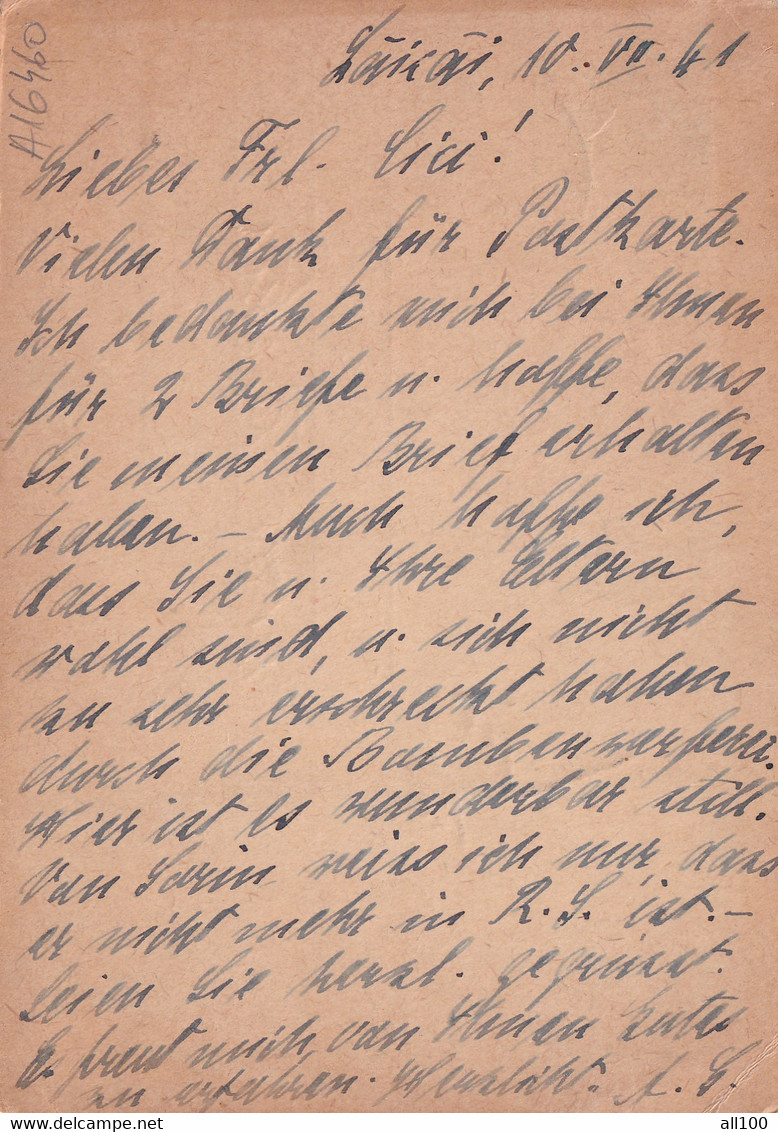 10. VII. 41
A16460
Liebes Frl. Cici!
Vielen Dank für Postkarte.
Ich bedankte mich bei Ihnen
für 2 Briefe u. hoffe, dass
Sie meinen Brief erhalten
haben. – Auch hoffe ich,
dass Sie u. Ihre Eltern
wohl sind, u. sich nicht
zu sehr erschreckt haben
durch die Bombenwerferei.
Hier ist es wunderbar still.
Von Sorin weiss ich nur, dass
er nicht mehr in R. S. ist. –
Seien Sie herzl. gegrüsst.
Es freut mich, von Ihnen Gutes
zu erfahren. Herzlichst. A. G.
© www.delcampe.net
all100